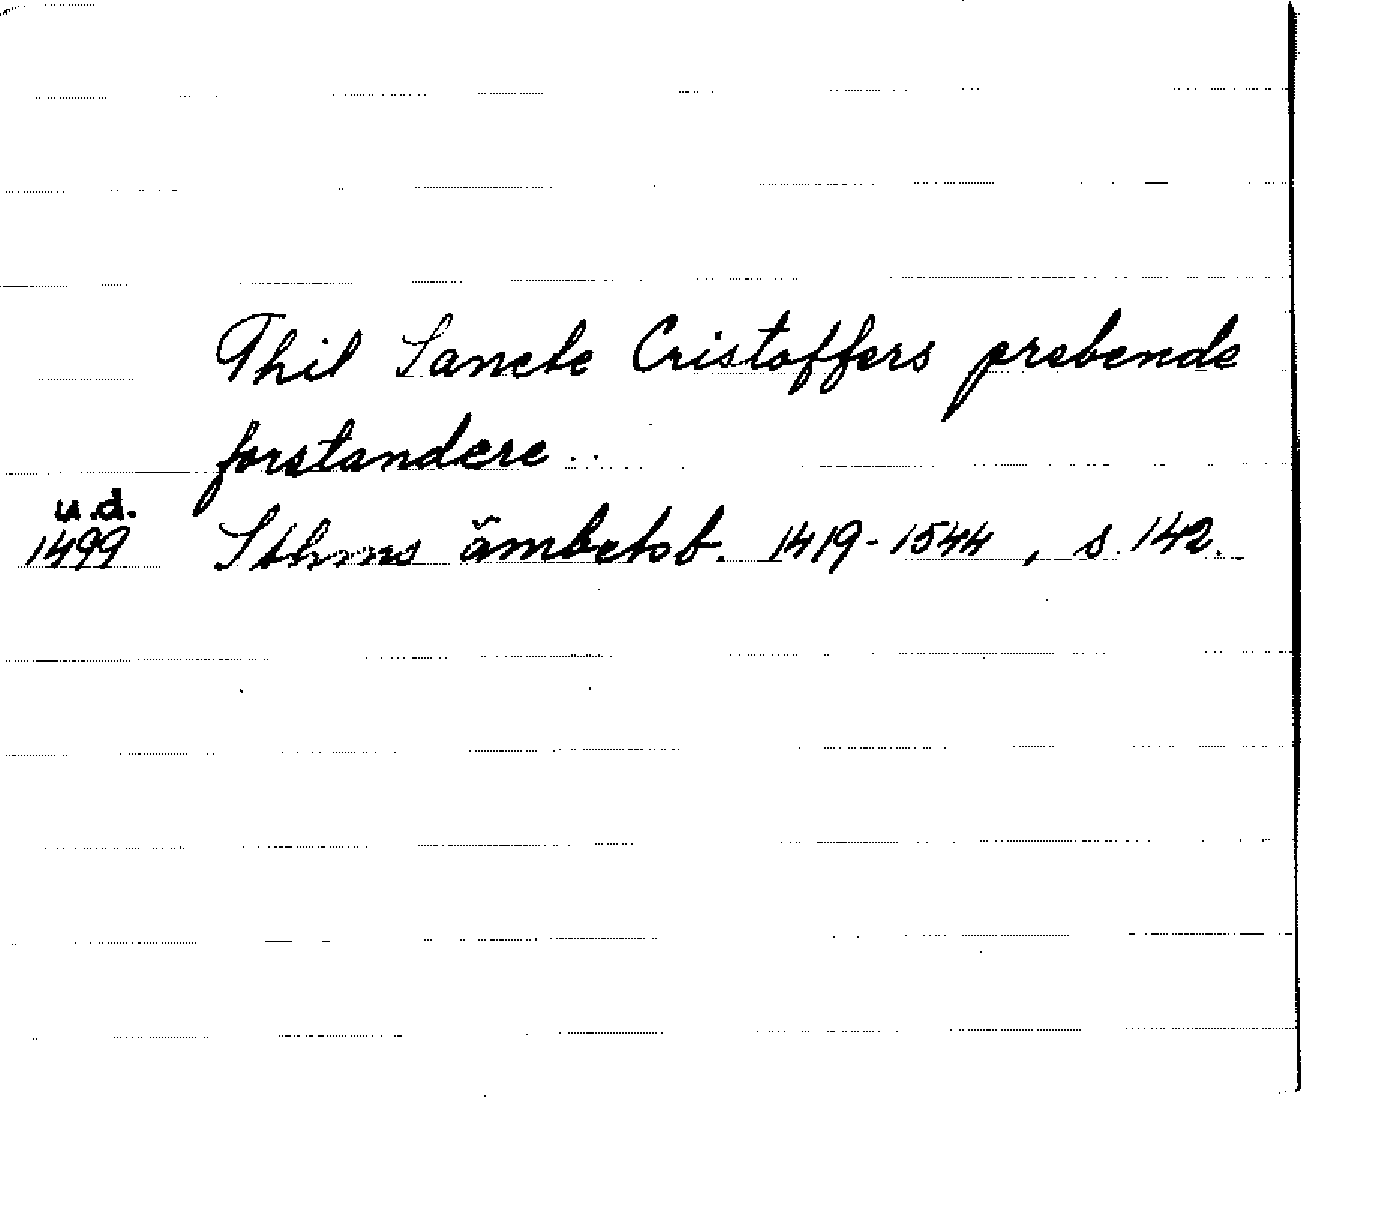 Thil Sancte Cristoffers prebende
forstandere ..
u.d.
1499 Sthms ämbetsb. 1419-1544, s. 142.